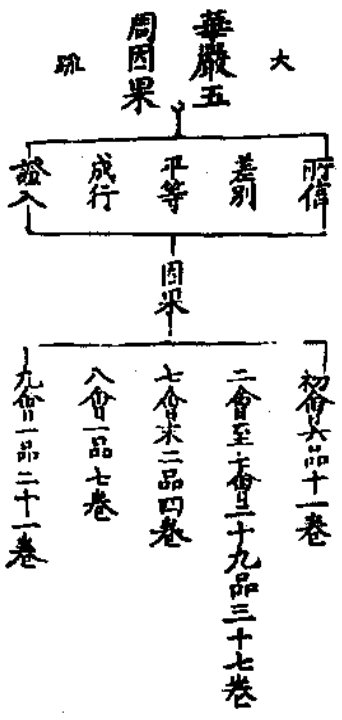 大
華嚴五
周因果
疏
所信
差別
平等
成行
證入
因果
初會六品十一卷
二會至七會二十九品三十七卷
七會末二品四卷
八會一品七卷
九會一品二十一卷